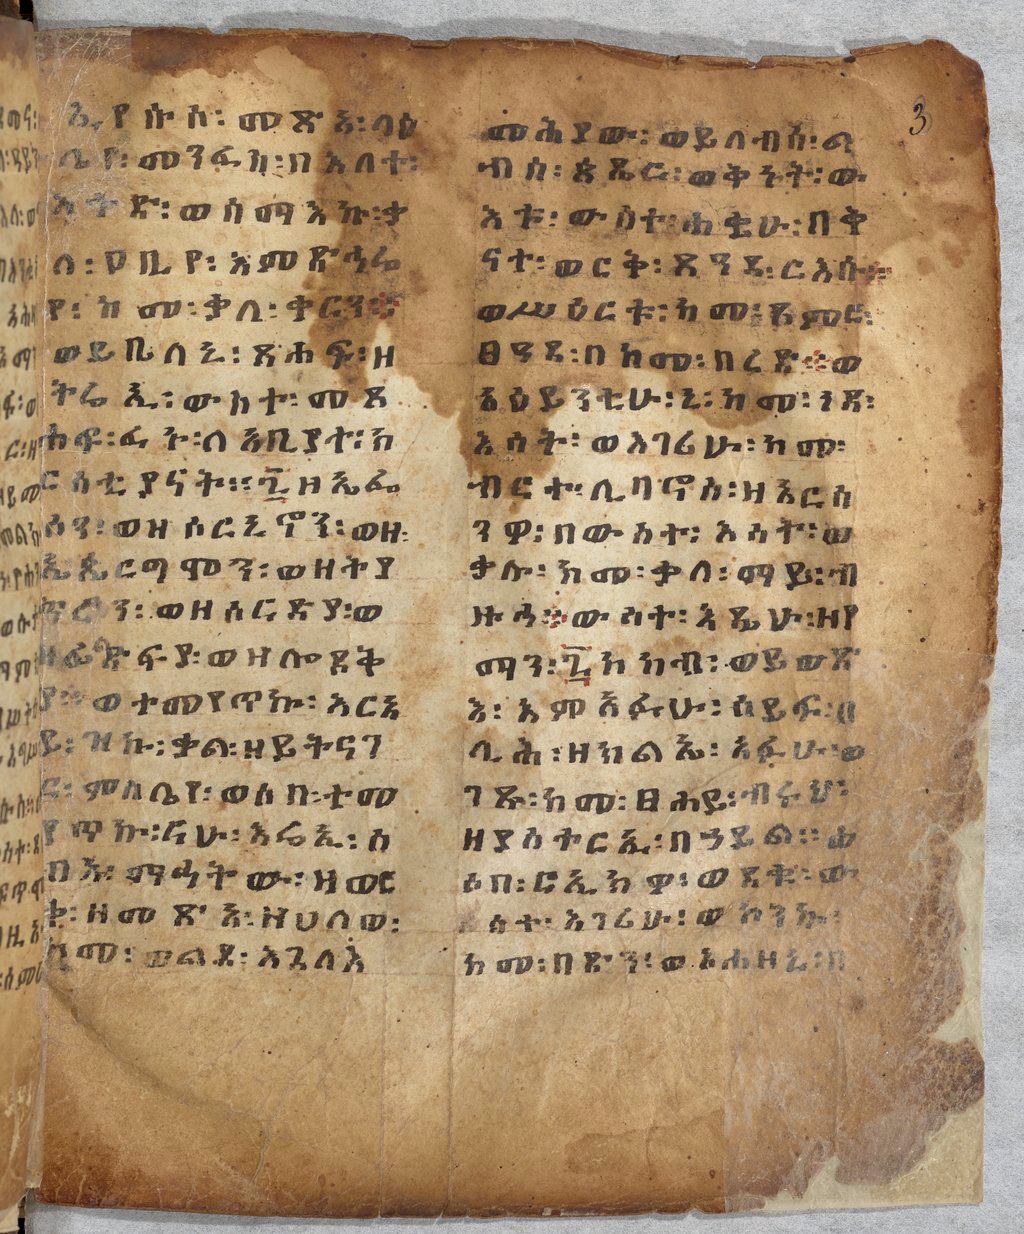 ኢየሱስ፡ መጽአ፡ ላዕ
ሌየ፡ መንፈስ፡ በእለተ፡
እኁድ፡ ወሰማእኩ፡ ቃ
ለ፡ ዐቢየ፡ እምድኅሬ
የ፡ ከመ፡ ቃለ፡ ቀርን፨
ወይቤለኒ፡ ጸሐፍ፡ ዘ
ትሬኢ፡ ውስተ፡ መጸ
ሐፍ፡ ፈኑ፡ ለአቢያተ፡ ክ
ርስቲያናት፡፡ ፯ ዘኤፌ
ሶን፡ ወዘሰርኔኖን፡ ወዘ፡
ጴርጋሞን፡ ወዘትያ
ጥሮን፡ ወዘሰርድያ፡ ወ
ዘፊልድፍያ፡ ወዘሎዶቅ
ያ፡፡ ወተመየጥኩ፡ አርአ
ይ፡ ዝኩ፡ ቃል፡ ዘይትናገ
ር፡ ምስሌየ፡ ወሶበ፡ ተመ
የጥኩ፡ ርሁ፡ እሬኢ፡ ሰ
ብአ፡ ማኅትው፡ ዘወር
ቅ፡ ዘመጽአ፡ ዘሀለወ፡
ከመ፡ ወልደ፡ እጓለእ
መሕያው፡ ወይለብስ፡ ል
ብሰ፡ ጶዴር፡ ወቅኑት፡ ው
እቱ፡ ውስተ፡ ሐቌሁ፡ በቅ
ናተ፡ ወርቅ፡ ጸዓዴ፡ ርእሱ፨
ወሥዕርቱ፡ ከመ፡ ፀምር፡
ፀዓዴ፡ በከመ፡ በረድ፨ ወ
አዕይንቲሁ፡ ኒ፡ ከመ፡ ነደ፡
እሳት፡ ወእገሪሁ፡ ከመ፡
ብርተ፡ ሊባኖስ፡ ዘእርስ
ንዋ፡ በውስተ፡ እሳት፡ ወ
ቃሉ፡ ከመ፡ ቃለ፡ ማይ፡ ብ
ዙኅ፨ ውስተ፡ እዴሁ፡ ዘየ
ማን፡ ፯ ከከብ፡ ወይወጽ
እ፡ እምአፉሁ፡ ሰይፍ፡ በ
ሊሕ፡ ዘክልኤ፡ አፉሁ፡ ወ
ገጹ፡ ከመ፡ ፀሐይ፡ ብሩህ፡
ዘያስተርኢ፡ በኃይል፡፡ ወ
ሶበ፡ ርኢክዎ፡ ወደቁ፡ ው
ስተ፡ እገሪሁ፡ ወኮንኩ፡
ከመ፡ በድን፡ ወአሐዘኒ፡ በ